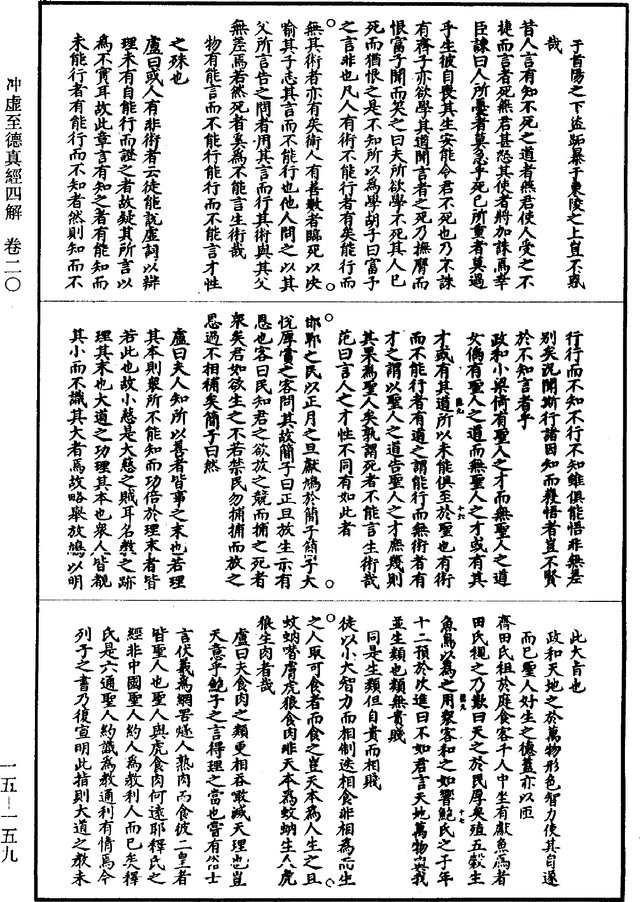 于首陽之下盜跖暴于東陵之上豈不惑
哉
昔人言有知不死之道者燕君使人受之不
捷而言者死燕君甚怒其使者將加誅焉幸
臣諫曰人所憂者莫急乎死己所重者莫過
乎生彼自喪其生安能令君不死也乃不誅
有齊子亦欲學其道聞言者之死乃撫膺而
恨富子聞而笑之曰夫所欲學不死其人已
死而猶恨之是不知所以為學胡子曰富子
之言非也凡人有術不能行者有矣能行而
無其術者亦有矣衛人有善數者臨死以决
喻其子志其言而不能行也他人問之以其
父所言告之問者用其言而行其術與其父
無差焉若然死者奚為不能言生術哉
物有能言而不能行能行而不能言才性
之殊也
盧曰或人有非術者云徒能說虛詞以辯
理未有自能行而證之者故疑其所言以
為不實耳故此章言有知之者有能知而
未能行者有能行而不知者然則知而不
行行而不知不行不知雖俱能悟非無差
別矣況聞斯行諸因知而獲悟者豈不賢
於不知言者乎
政和卜梁倚有聖人之才而無聖人之道
女偊有聖人之道而無聖人之才或有其
才或有其道所以未能俱至於聖也有術
而不能行者有道之謂能行而無術者有
才之謂以聖人之道告聖人之才庶幾則
其果為聖人矣孰謂死者不能言生術哉
范曰言人之才性不同有如此者
邯鄲之民以正月之旦獻鳩於簡子簡子大
悅厚賞之客問其故簡子曰正旦放生示有
恩也客曰民知君之欲放之競而捕之死者
衆矣君如欲生之不若禁民勿捕捕而放之
恩過不相補矣簡子曰然
盧曰夫人知所以善者皆事之末也若理
其本則衆所不能知而功倍於理末者皆
若此也故小慈是大慈之賊耳名教之跡
理其末也大道之功理其本也衆人皆覩
其小而不識其大者焉故略舉放鳩以明
此大旨也
政和天地之於萬物形色智力使其自遂
而已聖人好生之德蓋亦以叵
齊田氏祖於庭食客千人中坐有獻魚鴈者
田氏視之乃歎曰天之於民厚矣殖五穀生
魚鳥以為之用衆客和之如響鮑氏之子年
十二預於次進曰不如君言天地萬物與我
並生類也類無貴賤
同是生類但自貴而相賤
徒以小大智力而相制迭相食非相為而生
之人取可食者而食之豈天本為人生之且
蚊蚋噆膚虎狼食肉非天本為蚊蚋生人虎
狼生肉者哉
盧曰夫食肉之類更相吞噉滅天理也豈
天意乎鮑子之言得理之當也嘗有俗士
言伏羲為網罟燧人熟肉而食彼二皇者
皆聖人也聖人與虎食肉何遠耶釋氏之
經非中國聖人約人為教利人而已矣釋
氏是六通聖人約識為教通利有情焉今
列子之書乃復宣明此指則大道之教未
冲虛至德真經四解 卷二〇
一五—一五九